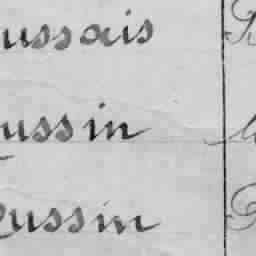 ussais
ussin
ussin